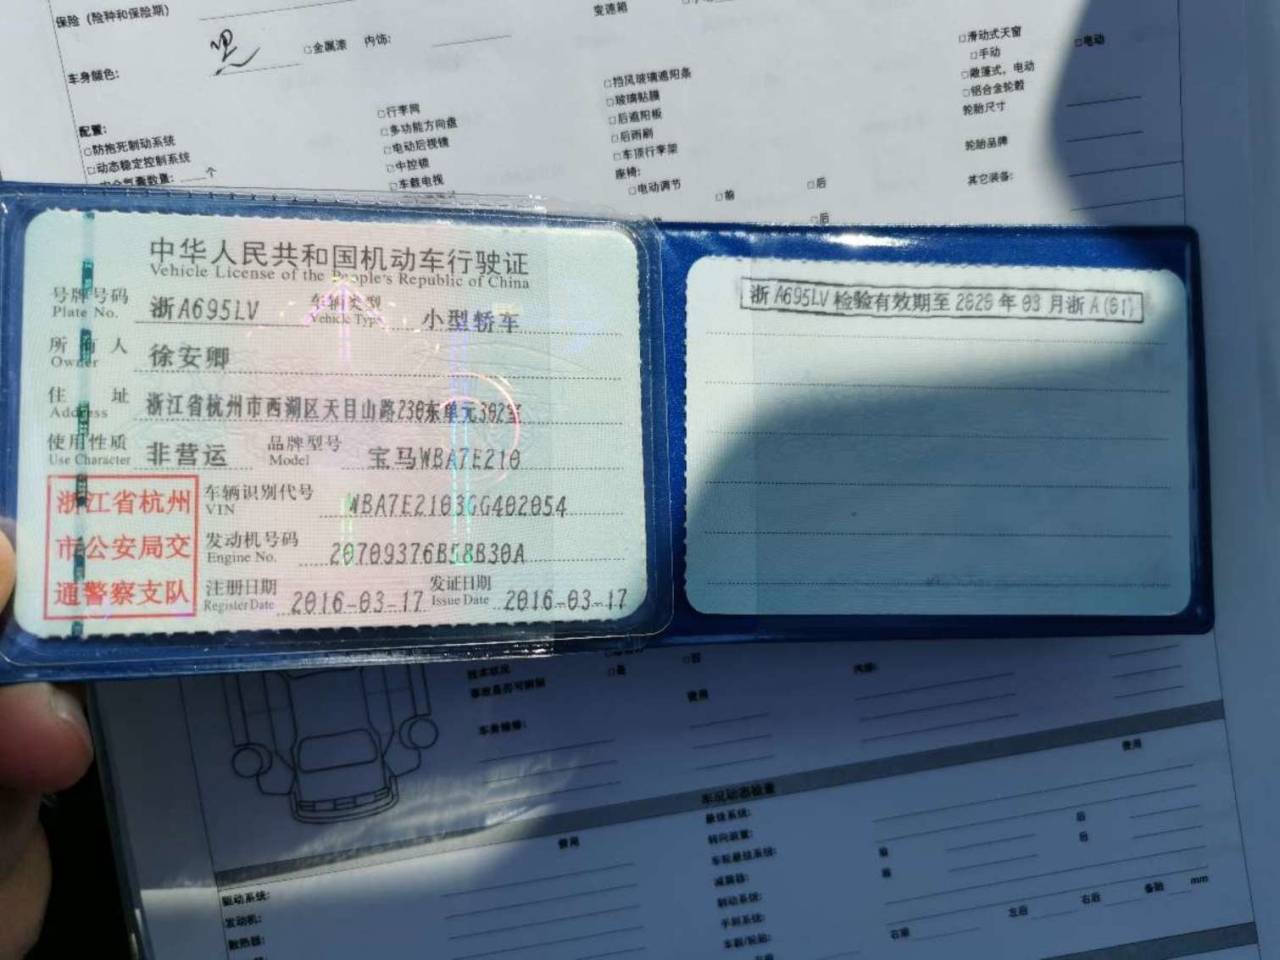 保险（险种和保险期）
变速箱
车身颜色：
黑
□金属漆
内饰：
□滑动式天窗
□手动
□电动
□敞篷式，电动
□铝合金轮毂
轮胎尺寸
轮胎品牌
其它装备：
配置：
□防抱死制动系统
□动态稳定控制系统
□行李网
□多功能方向盘
□电动后视镜
□中控锁
□车载电视
□挡风玻璃遮阳条
□玻璃贴膜
□后遮阳板
□后雨刷
□车顶行李架
座椅：
□电动调节
□前
□后
□后
中华人民共和国机动车行驶证
Vehicle License of the People's Republic of China
号牌号码 浙A695LV 车辆类型 小型轿车
Plate No. Vehicle Type
所有人 徐安卿
Owner
住址 浙江省杭州市西湖区天目山路230东单元302室
Address
使用性质 非营运 品牌型号 宝马WBA7E210
Use Character Model
浙江省杭州
市公安局交
通警察支队
车辆识别代号 WBA7E2103GG402054
VIN
发动机号码 20709376B58B30A
Engine No.
注册日期 2016-03-17 发证日期 2016-03-17
Register Date Issue Date
浙A695LV检验有效期至2020年03月浙A(01)
技术状况
□是
□否
内饰：
费用
车身维修：
车况动态检查
费用
费用
驱动系统：
发动机：
散热器：
悬挂系统：
转向装置：
车轮悬挂系统：
减震器：
制动系统：
手刹系统：
车毂/轮胎：
前
后
前
后
右前
左后
右后
备胎
mm